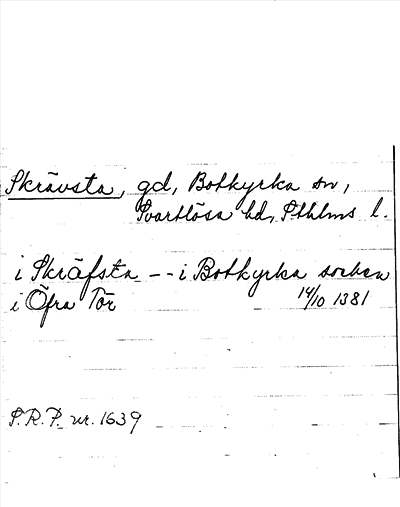 Skrävsta, gd, Botkyrka sn,
Svartlösa hd, Sthlms l.
i Skräfsta -- i Botkyrka socken
i Öfra Tör 14/10 1381
S.R.P. nr. 1639